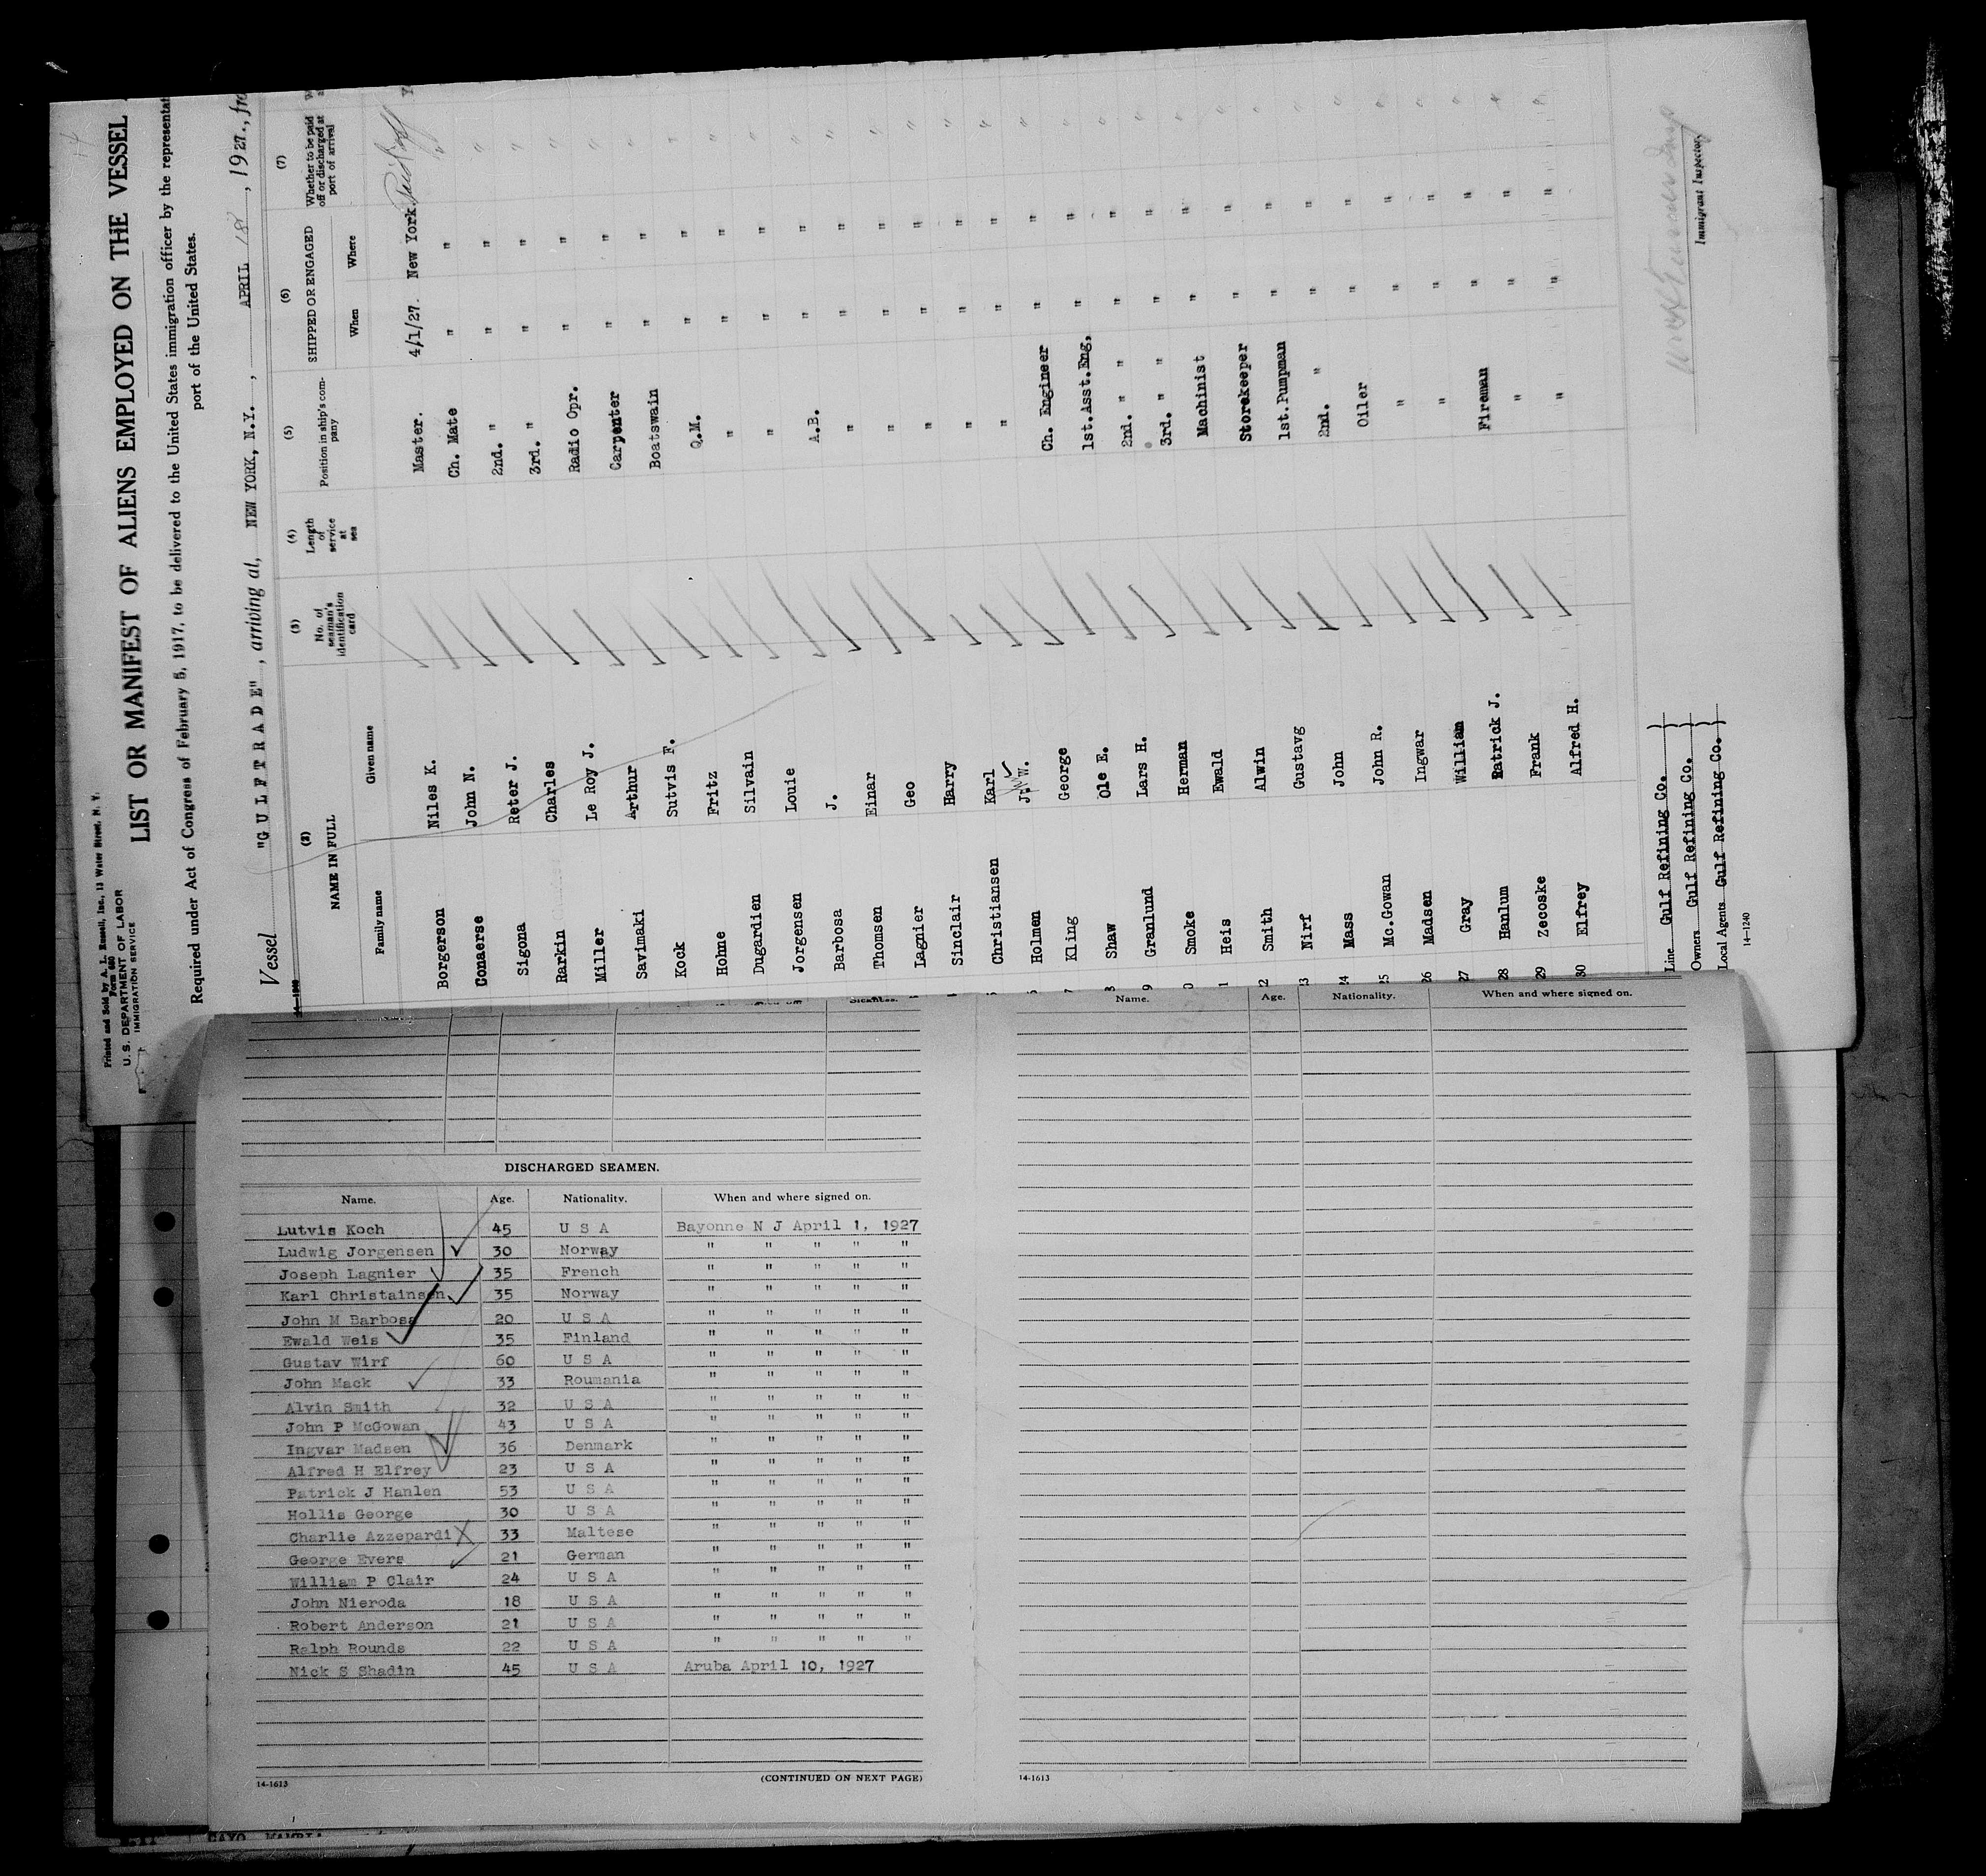 Printed and Sold by A. L. Russell, Inc., 13 Water Street, N. Y.
Form 680
U. S. DEPARTMENT OF LABOR
IMMIGRATION SERVICE
LIST OR MANIFEST OF ALIENS EMPLOYED ON THE VESSEL
Required under Act of Congress of February 5, 1917, to be delivered to the United States immigration officer by the representat
port of the United States.
Vessel "GULFTRADE", arriving at, NEW YORK, N.Y. , APRIL 18 , 1927., fro
(2) (3) (4) (5) (6) (7)
NAME IN FULL No. of seaman's identification card Length of service at sea Position in ship's company SHIPPED OR ENGAGED Whether to be paid off or discharged at port of arrival
Family name Given name When Where
Borgerson Niles K. Master. 4/1/27. New York.
Conaerse John N. Ch. Mate " "
Sigona Reter J. 2nd. " " "
Rarkin Charles 3rd. " " "
Miller Le Roy J. Radio Opr. " "
Savimaki Arthur Carpenter " "
Kock Sutvis F. Boatswain " "
Hohne Fritz Q.M. " "
Dugardien Silvain " " "
Jorgensen Louie " " "
Barbosa J. A.B. " "
Thomsen Einar " " "
Lagnier Geo " " "
Sinclair Harry " " "
Christiansen Karl " " "
Holmen J. W. " " "
Kling George Ch. Engineer " "
Shaw Ole E. 1st.Asst.Eng, " "
Granlund Lars H. 2nd. " " " "
Smoke Herman 3rd. " " " "
Heis Ewald Machinist " "
22 Smith Alwin Storekeeper " "
23 Nirf Gustavg 1st.Pumpman " "
24 Mass John 2nd. " " "
25 Mc.Gowan John R. Oiler " "
26 Madsen Ingwar " " "
27 Gray William " " "
28 Hanlum Patrick J. Fireman " "
29 Zecoske Frank " " "
30 Elfrey Alfred H. " " "
Line Gulf Refining Co.
Owners Gulf Refining Co.
Local Agents Gulf Refining Co.
14-1240
Immigrant Inspector
DISCHARGED SEAMEN.
Name. Age. Nationality. When and where signed on.
Lutvis Koch 45 U S A Bayonne N J April 1, 1927
Ludwig Jorgensen 30 Norway " " " " "
Joseph Lagnier 35 French " " " " "
Karl Christainsen 35 Norway " " " " "
John M Barbosa 20 U S A " " " " "
Ewald Weis 35 Finland " " " " "
Gustav Wirf 60 U S A " " " " "
John Mack 33 Roumania " " " " "
Alvin Smith 32 U S A " " " " "
John P McGowan 43 U S A " " " " "
Ingvar Madsen 36 Denmark " " " " "
Alfred H Elfrey 23 U S A " " " " "
Patrick J Hanlen 53 U S A " " " " "
Hollis George 30 U S A " " " " "
Charlie Azzepardi 33 Maltese " " " " "
George Evers 21 German " " " " "
William P Clair 24 U S A " " " " "
John Nieroda 18 U S A " " " " "
Robert Anderson 21 U S A " " " " "
Ralph Rounds 22 U S A " " " " "
Nick S Shadin 45 U S A Aruba April 10, 1927
14-1613 (CONTINUED ON NEXT PAGE)
Name. Age. Nationality. When and where signed on.
14-1613